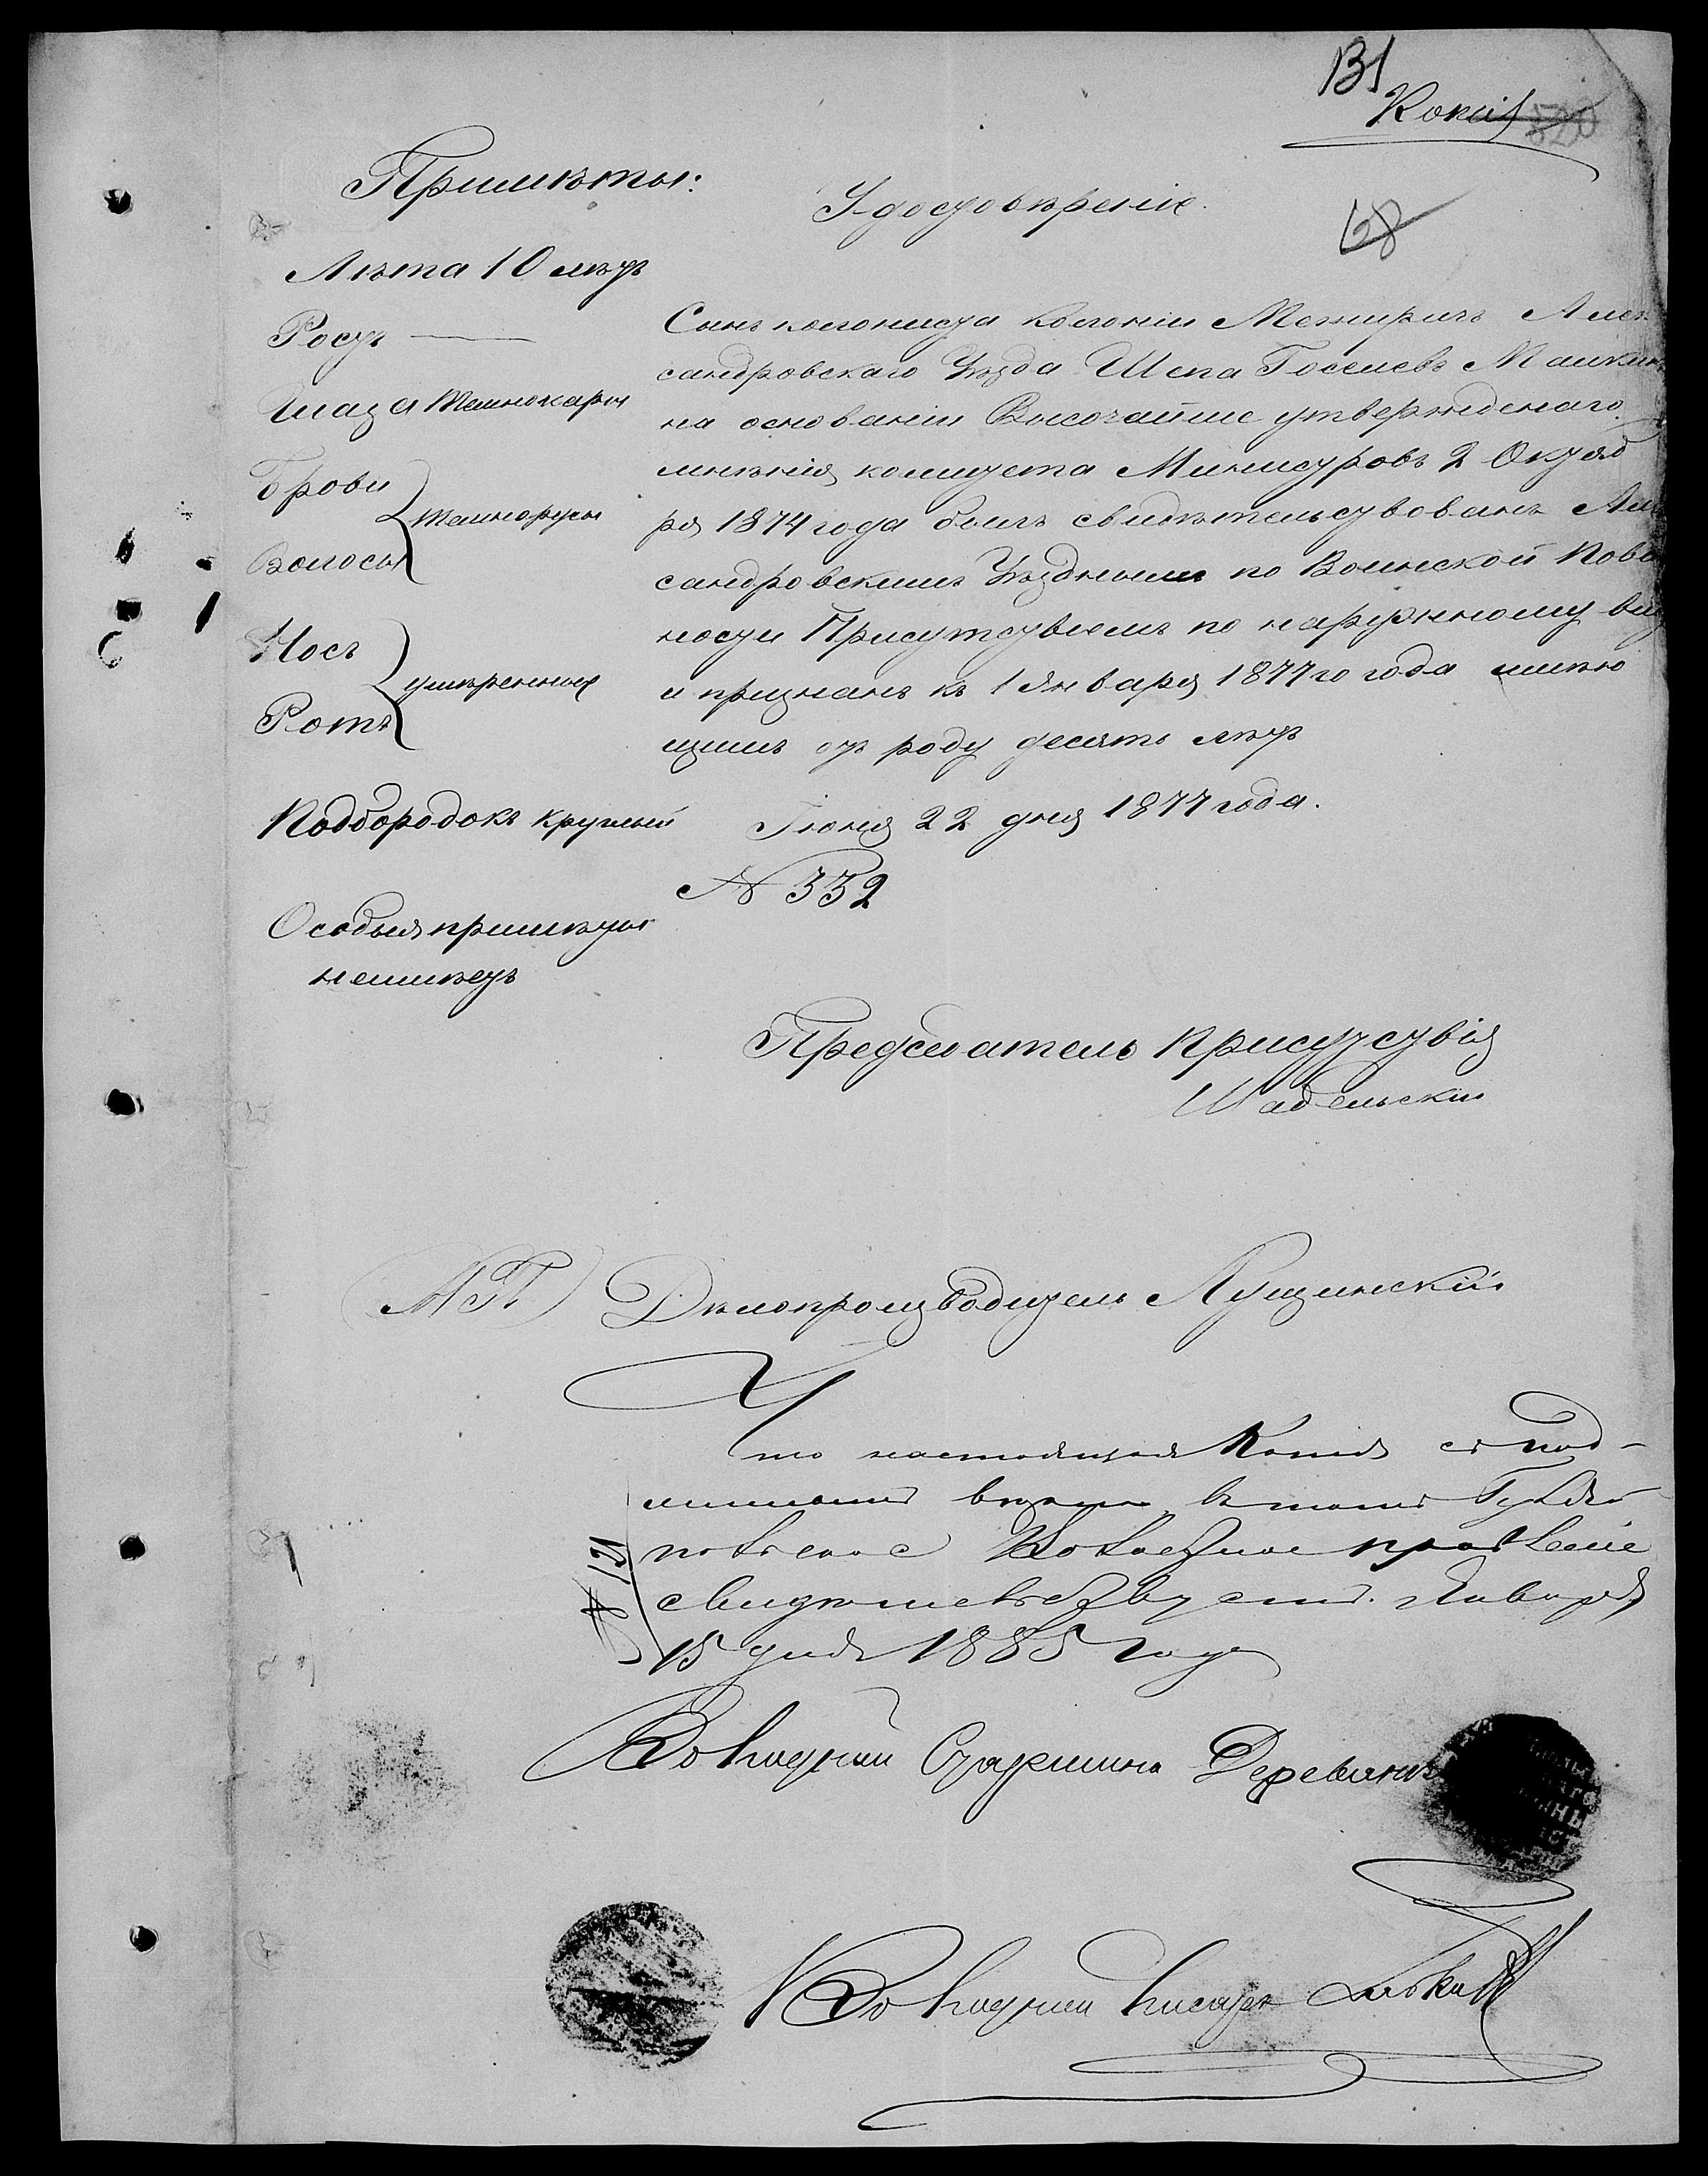 131
Копія
520
138
Примѣты:
Лѣта 10 лѣтъ
Ростъ —
Глаза темнокаріи
Брови
Волосы
темнорусы
Носъ
Ротъ
умѣренные
Подбородокъ круглый
Особыя примѣты
неимѣетъ
Удостовѣреніе.
Сынъ колониста колоніи Межиричъ Алек
сандровскаго Уѣзда Шепа Госелевъ Машкин
на основаніи Высочайше утвержденаго
мнѣнія комитета Министровъ 2 Октяб
ря 1874 года былъ свидѣтельствованъ Але
сандровскимъ Уѣзднымъ по Воинской Пови
ности Присутствіемъ по наружному ви
и признанъ къ 1 января 1877 го года имѣю
щимъ отъ роду десять лѣтъ
Іюня 22 дня 1877 года.
№ 332
Предсѣдатель присутствія
Шабельскій
МП Дѣлопроизводитель Лущинскій
Что настоящая Копія съ под-
линнымъ вѣрна въ томъ
Волостное правленіе
свидѣтельствуетъ. Января
15 дня 1885 года
№ 121
Волостной Старшина
Волостной писарь